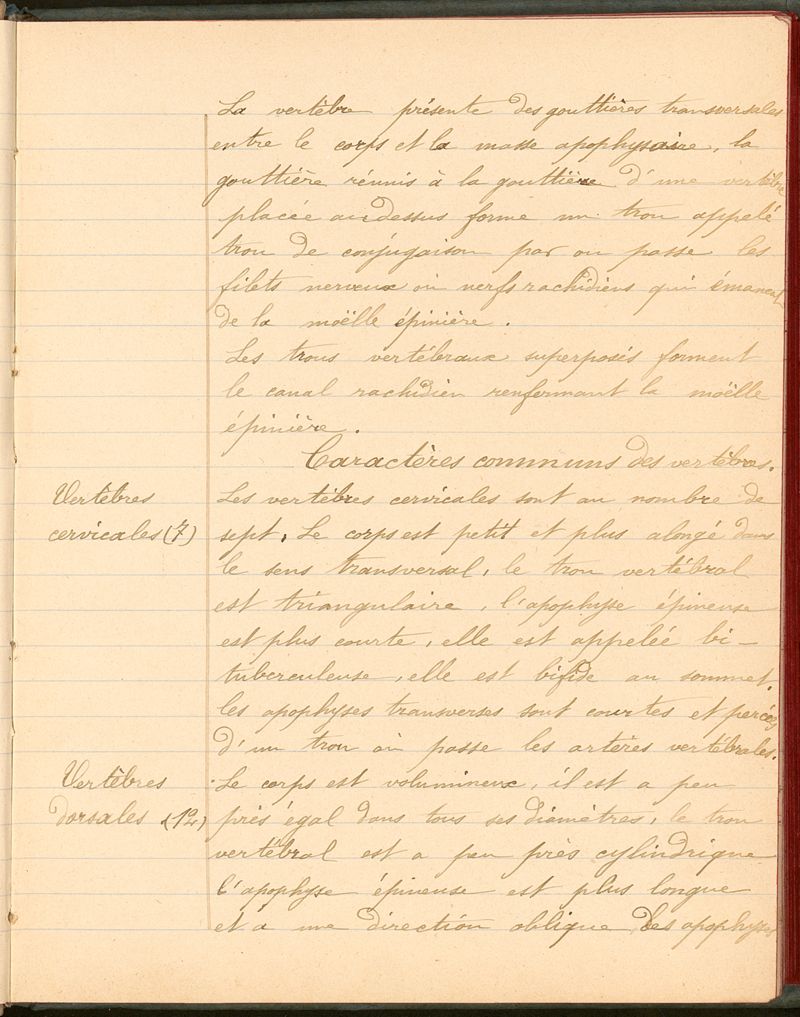 La vertèbre présente des gouttières transversales
entre le corps et la masse apophysaire, la
gouttière réunis à la gouttière d'une vertèbre
placée au dessus forme un trou appelé
trou de conjugaison par ou passe les
filets nerveux ou nerfs rachidiens qui émanent
de la moëlle épinière.
Les trous vertébraux superposés forment
le canal rachidien renfermant la moëlle
épinière.
Caractères communs des vertèbres.
Vertèbres
cervicales (7)
Les vertèbres cervicales sont au nombre de
sept. Le corps est petit et plus alongé dans
le sens transversal, le trou vertébral
est triangulaire, l'apophyse épineuse
est plus courte, elle est appelée bi-
tuberculeuse, elle est bifide au sommet.
les apophyses transverses sont courtes et percées
d'un trou où passe les artères vertébrales.
Vertèbres
dorsales (12)
Le corps est volumineux, il est a peu
près égal dans tous ses diamètres, le trou
vertébral est a peu près cylindrique
l'apophyse épineuse est plus longue
et a une direction oblique, les apophyses